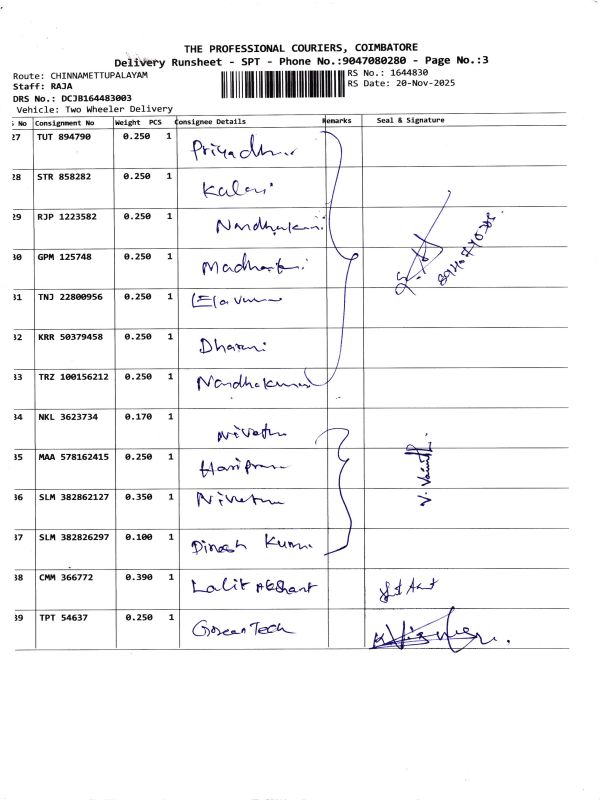 THE PROFESSIONAL COURIERS, COIMBATORE
Delivery Runsheet - SPT - Phone No.:9047080280 - Page No.:3
Route: CHINNAMETTUPALAYAM
RS No.: 1644830
Staff: RAJA
RS Date: 20-Nov-2025
DRS No.: DCJB164483003
Vehicle: Two Wheeler Delivery
No Consignment No Weight PCS Consignee Details Remarks Seal & Signature
27 TUT 894790 0.250 1
28 STR 858282 0.250 1 Kalani
29 RJP 1223582 0.250 1
30 GPM 125748 0.250 1
31 TNJ 22800956 0.250 1
32 KRR 50379458 0.250 1 Dharani
33 TRZ 100156212 0.250 1 Nandhakumar
34 NKL 3623734 0.170 1 Nivetha
35 MAA 578162415 0.250 1
36 SLM 382862127 0.350 1 Nivetha
37 SLM 382826297 0.100 1 Dinesh Kumar
38 CMM 366772 0.390 1 Lalit Akshant
39 TPT 54637 0.250 1 Green Tech